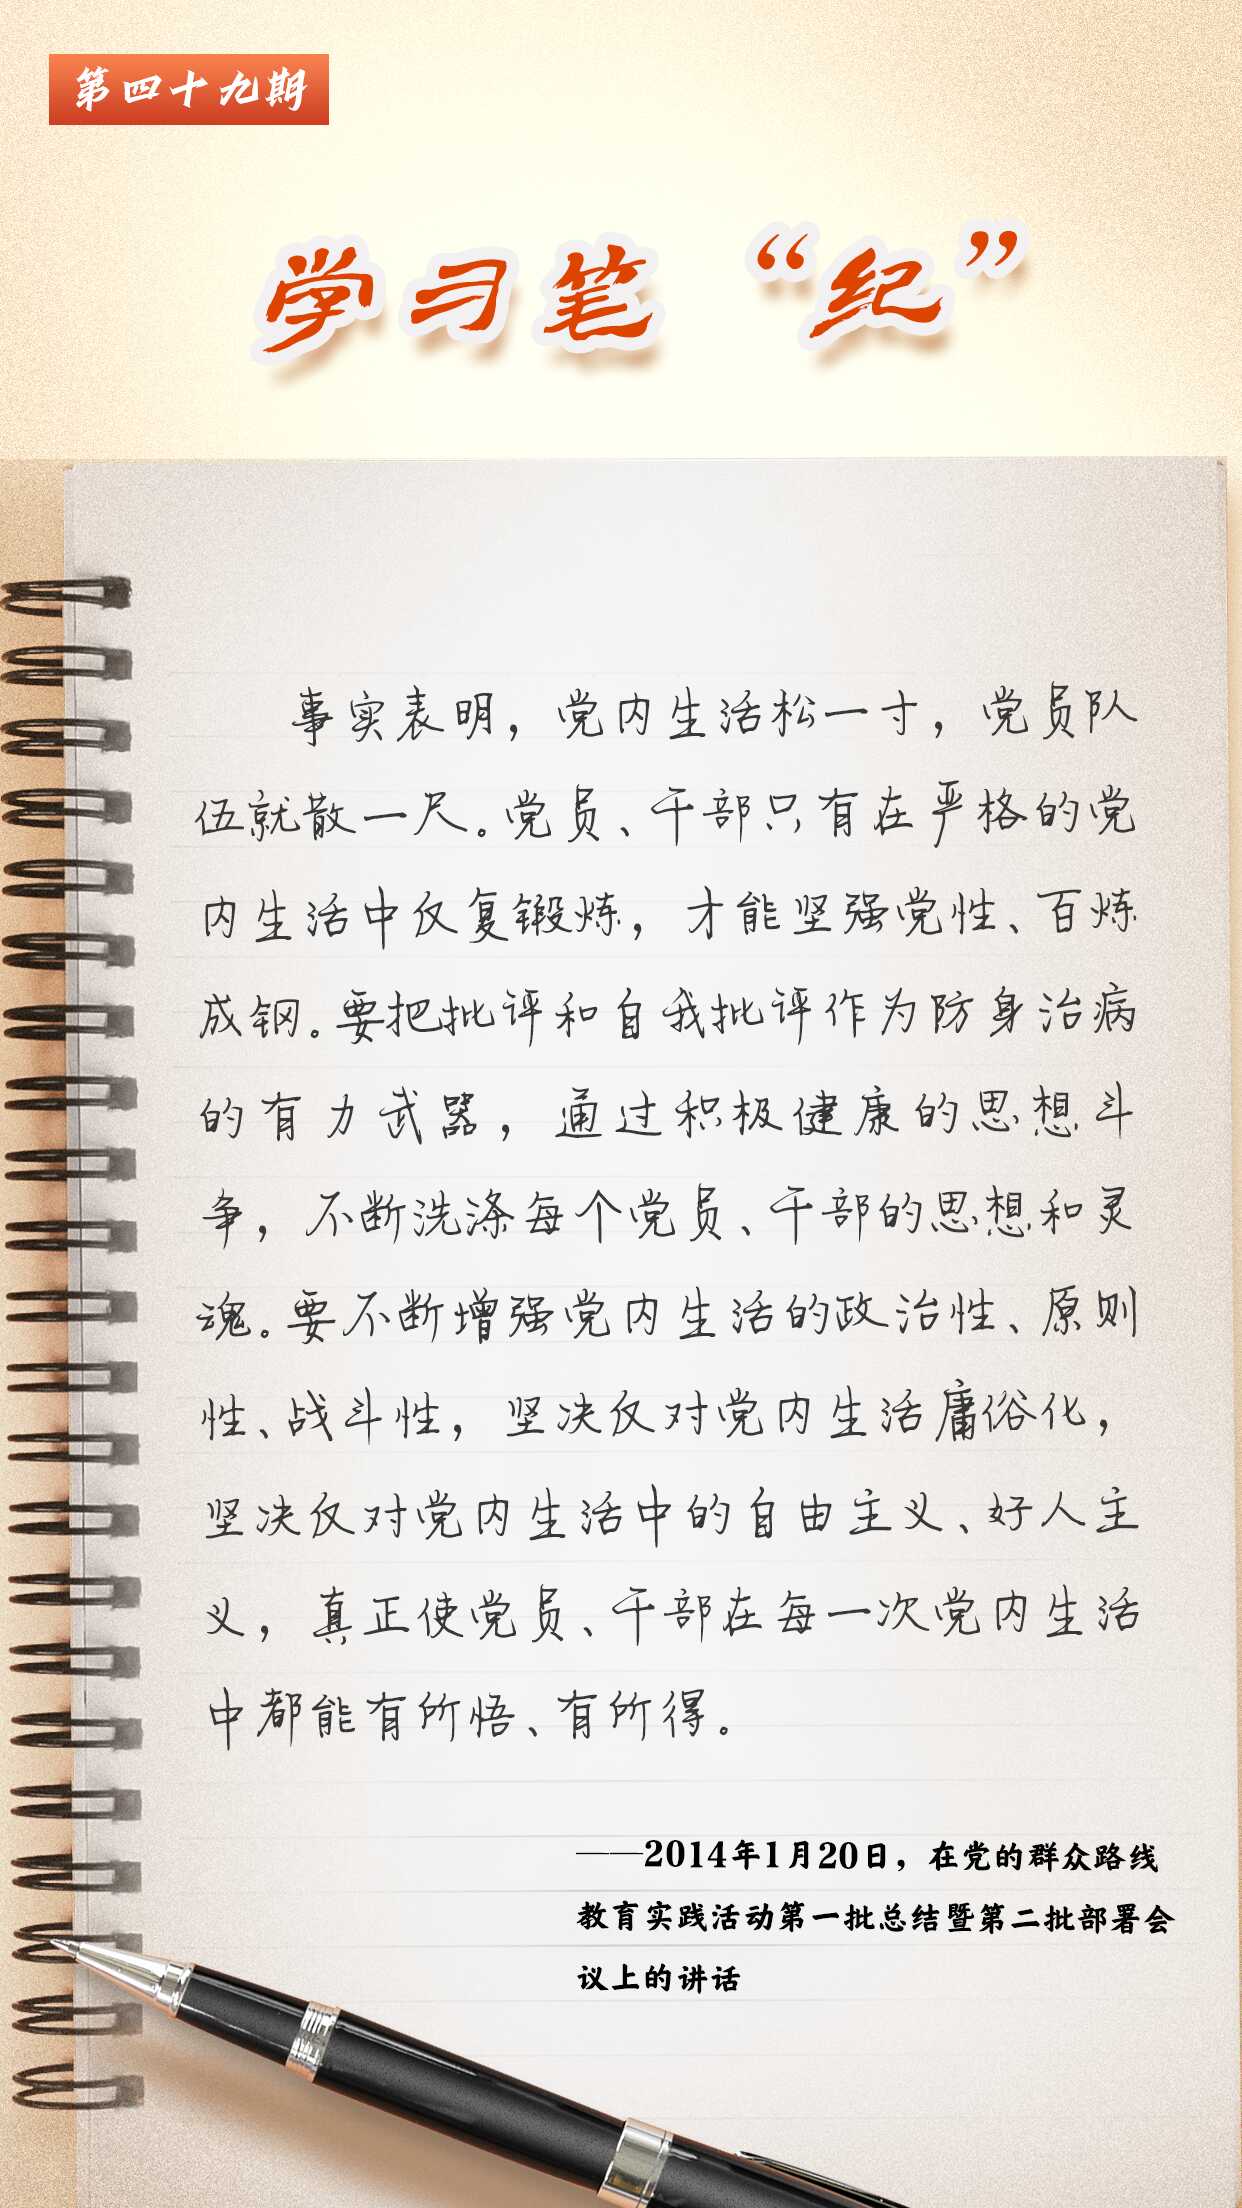 第四十九期
学习笔“纪”
事实表明，党内生活松一寸，党员队
伍就散一尺。党员、干部只有在严格的党
内生活中反复锻炼，才能坚强党性、百炼
成钢。要把批评和自我批评作为防身治病
的有力武器，通过积极健康的思想斗
争，不断洗涤每个党员、干部的思想和灵
魂。要不断增强党内生活的政治性、原则
性、战斗性，坚决反对党内生活庸俗化，
坚决反对党内生活中的自由主义、好人主
义，真正使党员、干部在每一次党内生活
中都能有所悟、有所得。
——2014年1月20日，在党的群众路线
教育实践活动第一批总结暨第二批部署会
议上的讲话